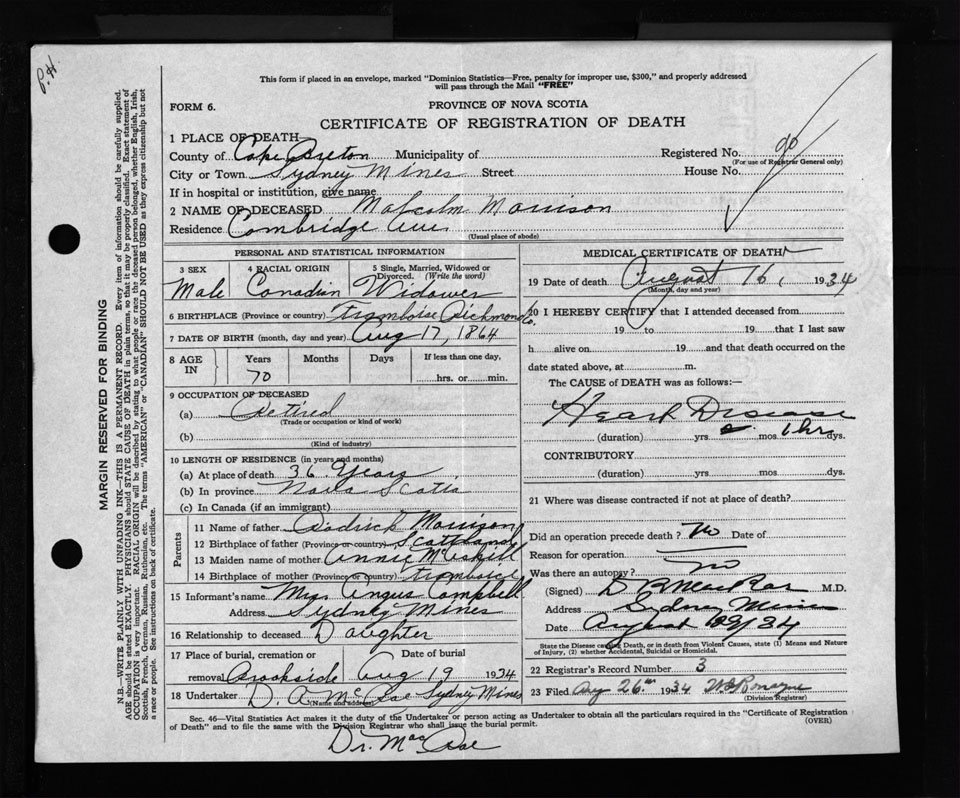 P.H.
This form if placed in an envelope, marked "Dominion Statistics—Free, penalty for improper use, $300," and properly addressed
will pass through the Mail "FREE"
FORM 6.
PROVINCE OF NOVA SCOTIA
CERTIFICATE OF REGISTRATION OF DEATH
1 PLACE OF DEATH
County of Cape Breton Municipality of
Registered No.
(For use of Registrar General only)
City or Town Sydney Mines Street House No.
If in hospital or institution, give name
2 NAME OF DECEASED Malcolm Morrison
Residence Cambridge Ave
(Usual place of abode)
MARGIN RESERVED FOR BINDING
N.B.—WRITE PLAINLY WITH UNFADING INK—THIS IS A PERMANENT RECORD. Every item of information should be carefully supplied.
AGE should be stated EXACTLY. PHYSICIANS should STATE CAUSE OF DEATH in plain terms, so that it may be properly classified. Exact statement of
OCCUPATION is very important. RACIAL ORIGIN will be described by stating to what people or race the deceased person belonged, whether English, Irish,
Scottish, French, German, Russian, Ruthenian, etc. The terms "AMERICAN" or "CANADIAN" SHOULD NOT BE USED as they express citizenship but not
a race or people. See instructions on back of certificate.
PERSONAL AND STATISTICAL INFORMATION
3 SEX
Male
4 RACIAL ORIGIN
Canadian
5 Single, Married, Widowed or
Divorced. (Write the word)
Widower
6 BIRTHPLACE (Province or country) Framboise Richmond Co.
7 DATE OF BIRTH (month, day and year) Aug 17, 1864
8 AGE IN
Years Months Days If less than one day,
70
hrs. or min.
9 OCCUPATION OF DECEASED
(a) Retired
(Trade or occupation or kind of work)
(b)
(Kind of industry)
10 LENGTH OF RESIDENCE (in years and months)
(a) At place of death 36 Years
(b) In province Nova Scotia
(c) In Canada (if an immigrant)
Parents
11 Name of father Rodrick Morrison
12 Birthplace of father (Province or country) Scottland
13 Maiden name of mother Annie McAskill
14 Birthplace of mother (Province or country)
15 Informant's name Mrs Angus Campbell
Address Sydney Mines
16 Relationship to deceased Daughter
17 Place of burial, cremation or Date of burial
removal Brookside Aug 19 1934
18 Undertaker D. A. McRae Sydney Mines
(Name and address)
MEDICAL CERTIFICATE OF DEATH
19 Date of death August 16, 1934
(Month, day and year)
20 I HEREBY CERTIFY that I attended deceased from
19 to 19 that I last saw
h alive on 19 and that death occurred on the
date stated above, at m.
The CAUSE of DEATH was as follows:—
Heart Disease
(duration) yrs. mos. 1 hrs dys.
CONTRIBUTORY
(duration) yrs. mos. dys.
21 Where was disease contracted if not at place of death?
Did an operation precede death? No Date of
Reason for operation
Was there an autopsy? no
(Signed) M.D.
Address Sydney Mines
Date August /34
State the Disease causing Death, or in death from Violent Causes, state (1) Means and Nature
of Injury, (2) whether Accidental, Suicidal or Homicidal.
22 Registrar's Record Number 3
23 Filed Aug 26th 1934
(Division Registrar)
Sec. 46—Vital Statistics Act makes it the duty of the Undertaker or person acting as Undertaker to obtain all the particulars required in the "Certificate of Registration
of Death" and to file the same with the Division Registrar who shall issue the burial permit.
(OVER)
Dr. MacRae